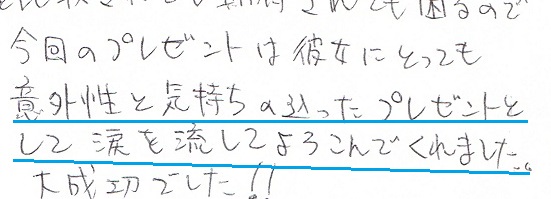 今回のプレゼントは彼女にとっても
意外性と気持ちの込ったプレゼントと
して涙を流してよろこんでくれました。
大成功でした!!